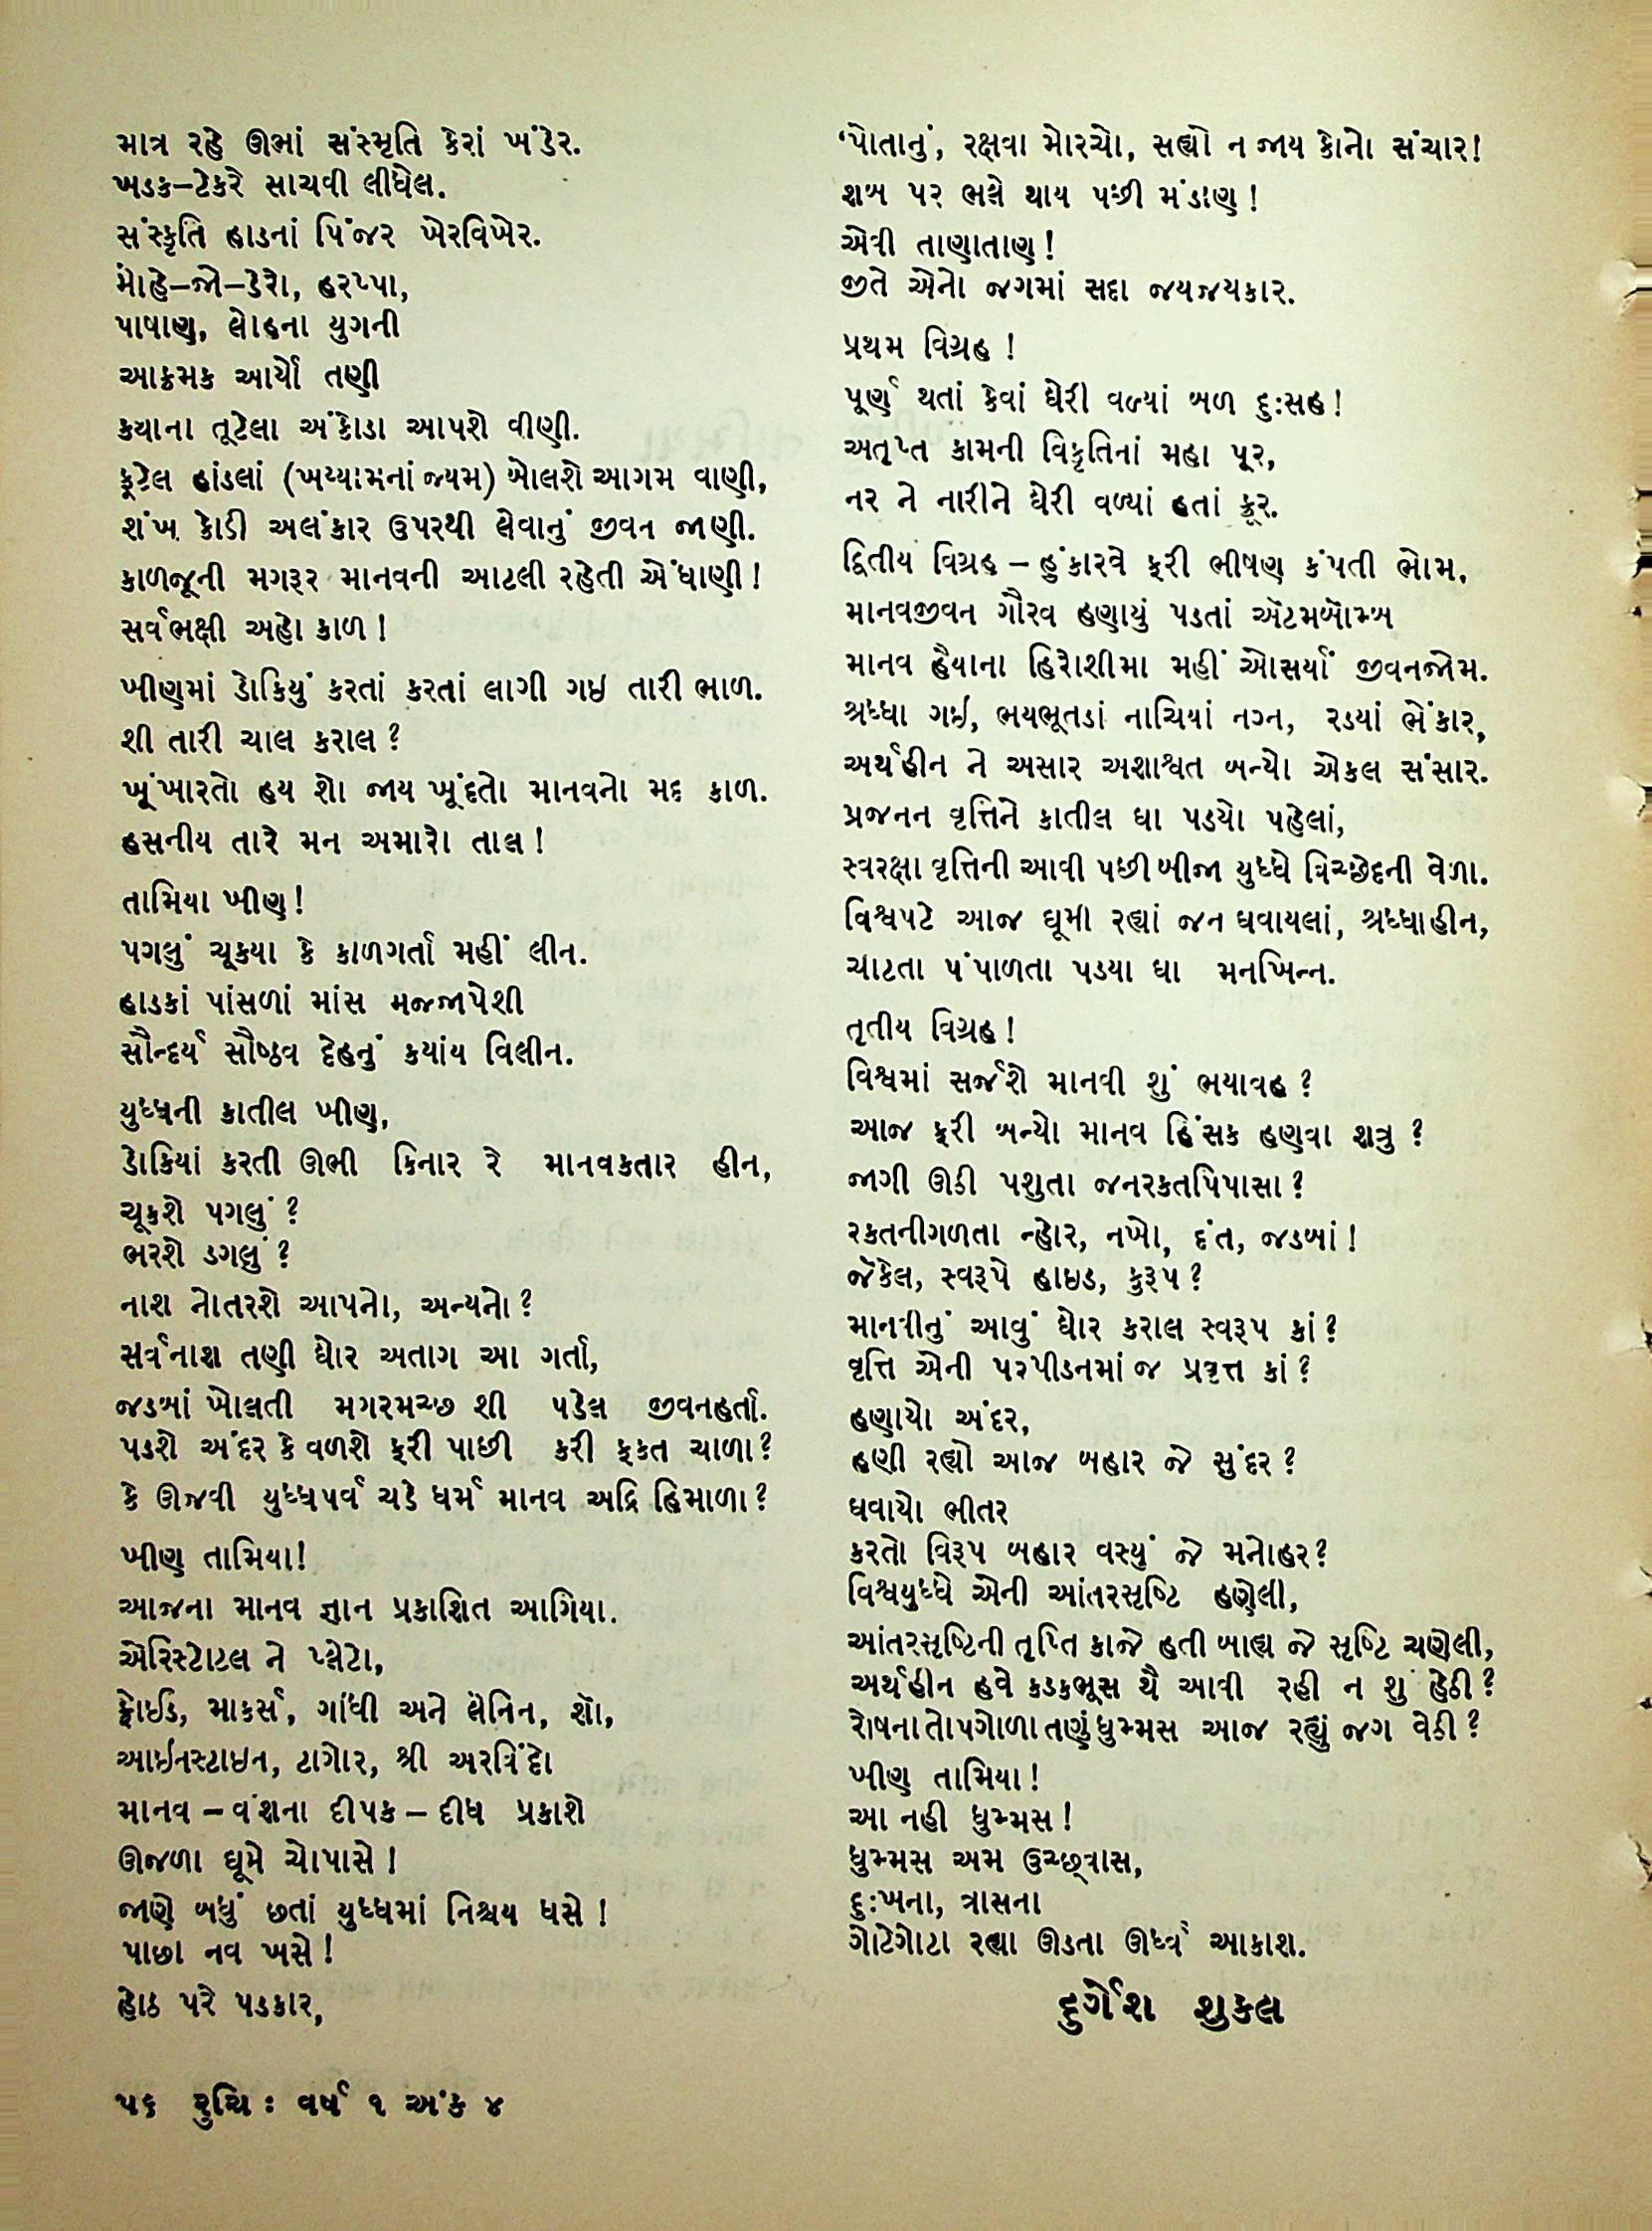 માત્ર રહે ઊભાં સંસ્મૃતિ કેરાં ખંડેર.
ખડક–ટેકરે સાચવી લીધેલ.
સંસ્કૃતિ હાડનાં પિંજર ખેરવિખેર.
મોંહે–જો–ડેરો, હરપ્પા,
પાષાણ, લોહના યુગની
આક્રમક આર્યો તણી
કથાના તૂટેલા અંકોડા આપશે વીણી.
ફૂટેલ હાંડલાં (ખય્યામનાં જ્યમ) બોલશે આગમ વાણી,
શંખ કોડી અલંકાર ઉપરથી લેવાનું જીવન જાણી.
કાળજૂની મગરૂર માનવની આટલી રહેતી એંધાણી!
સર્વભક્ષી અહો કાળ!
ખીણમાં ડોકિયું કરતાં કરતાં લાગી ગઇ તારી ભાળ.
શી તારી ચાલ કરાલ?
ખૂંખારતો હય શો જાય ખૂંદતો માનવનો મદ કાળ.
હસનીય તારે મન અમારો તાલ!
તામિયા ખીણ!
પગલું ચૂકયા કે કાળગર્તા મહીં લીન.
હાડકાં પાંસળાં માંસ મજ્જાપેશી
સૌન્દર્ય સૌષ્ઠવ દેહનું કયાંય વિલીન.
યુધ્ધની કાતીલ ખીણ,
ડોકિયાં કરતી ઊભી કિનાર રે માનવકતાર હીન,
ચૂકશે પગલું?
ભરશે ડગલું?
નાશ નોતરશે આપનો, અન્યનો?
સર્વનાશ તણી ઘોર અતાગ આ ગર્તા,
જડબાં ખોલતી મગરમચ્છ શી પડેલ જીવનહર્તા.
પડશે અંદર કે વળશે ફરી પાછી કરી ફકત ચાળા?
કે ઊજવી યુધ્ધપર્વ ચડે ધર્મ માનવ અદ્રિ હિમાળા?
ખીણ તામિયા!
આજના માનવ જ્ઞાન પ્રકાશિત આગિયા.
એરિસ્ટોટલ ને પ્લેટો,
ફ્રોઈડ, માકર્સ, ગાંધી અને લેનિન, શૉ,
આઈનસ્ટાઇન, ટાગોર, શ્રી અરવિંદો
માનવ – વંશના દીપક – દીધ પ્રકાશે
ઊજળા ઘૂમે ચોપાસે!
જાણે બધું છતાં યુધ્ધમાં નિશ્ચય ધસે!
પાછા નવ ખસે!
હોઠ પરે પડકાર,
‘પોતાનું, રક્ષવા મોરચો, સહ્યો ન જાય કોનો સંચાર!
શબ પર ભલે થાય પછી મંડાણ!
એવી તાણાતાણ!
જીતે એનો જગમાં સદા જયજયકાર.
પ્રથમ વિગ્રહ!
પૂર્ણ થતાં કેવાં ઘેરી વળ્યાં બળ દુઃસહ!
અતૃપ્ત કામની વિકૃતિનાં મહા પૂર,
નર ને નારીને ઘેરી વળ્યાં હતાં ક્રૂર.
દ્વિતીય વિગ્રહ – હુંકારવે ફરી ભીષણ કંપતી ભોમ,
માનવજીવન ગૌરવ હણાયું પડતાં ઍટમબૉમ્બ
માનવ હૈયાના હિરોશીમા મહીં ઓસર્યાં જીવનજોમ.
શ્રધ્ધા ગઈ, ભયભૂતડાં નાચિયાં નગ્ન, રડયાં ભેંકાર,
અર્થહીન ને અસાર અશાશ્વત બન્યો એકલ સંસાર.
પ્રજનન વૃત્તિને કાતીલ ઘા પડયો પહેલાં,
સ્વરક્ષા વૃત્તિની આવી પછી બીજા યુધ્ધે વિચ્છેદની વેળા.
વિશ્વપટે આજ ઘૂમી રહ્યાં જન ઘવાયલાં, શ્રધ્ધાહીન,
ચાટતા પંપાળતા પડયા ઘા મનખિન્ન.
તૃતીય વિગ્રહ!
વિશ્વમાં સર્જશે માનવી શું ભયાવહ?
આજ ફરી બન્યો માનવ હિંસક હણવા શત્રુ?
જાગી ઊઠી પશુતા જનરકતપિપાસા?
રકતનીગળતા ન્હોર, નખો, દંત, જડબાં!
જૅકેલ, સ્વરૂપે હાઇડ, કુરૂપ?
માનવીનું આવું ઘોર કરાલ સ્વરૂપ કાં?
વૃત્તિ એની પરપીડનમાં જ પ્રવૃત્ત કાં?
હણાયો અંદર,
હણી રહ્યો આજ બહાર જે સુંદર?
ઘવાયો ભીતર
કરતો વિરૂપ બહાર વસ્યું જે મનોહર?
વિશ્વયુધ્ધે એની આંતરસૃષ્ટિ હણેલી,
આંતરસૃષ્ટિની તૃપ્તિ કાજે હતી બાહ્ય જે સૃષ્ટિ ચણેલી,
અર્થહીન હવે કડકભૂસ થૈ આવી રહી ન શું હેઠી?
રોષના તોપગોળા તણું ધુમ્મસ આજ રહ્યું જગ વેઠી?
ખીણ તામિયા!
આ નહી ધુમ્મસ!
ધુમ્મસ અમ ઉચ્છ્વાસ,
દુઃખના, ત્રાસના
ગોટેગોટા રહ્યા ઊડતા ઊર્ધ્વ આકાશ.
દુર્ગેશ શુકલ
૫૬ રુચિ : વર્ષ ૧ અંક ૪